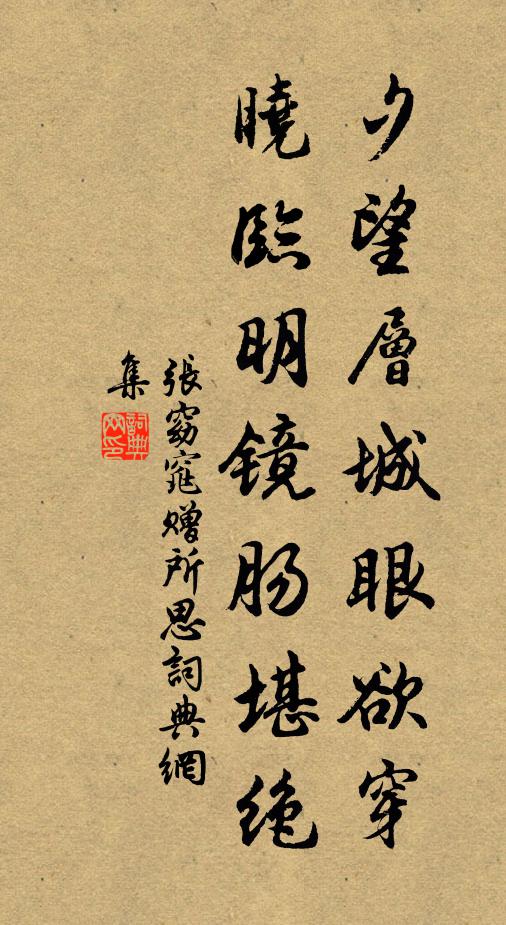 夕望層城眼欲穿
曉臨明鏡腸堪絕
張窈窕贈所思詞典網
集
詞典网印